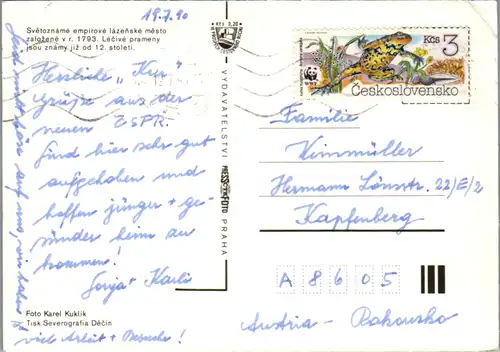 19.7.90
Světoznámé empírové lázeňské město
založené v r. 1793. Léčivé prameny
jsou známy již od 12. století.
Herzliche „Kur"
Grüße aus der
neuen ČSFR.
Sind hier sehr gut
aufgehoben und
hoffen jünger + ge-
sünder heim zu
kommen!
Sonja + Karli
Seid nicht böse auf uns, wir haben so
viel Arbeit + Besuche!
Foto Karel Kuklík
Tisk Severografia Děčín
Kčs 0,20
VYDAVATELSTVÍ PRESSFOTO PRAHA
Kčs 3
Československo
WWF
Familie
Wimmüller
Hermann Lönsstr. 22/E/2
Kapfenberg
A 8605
Austria - Rakousko